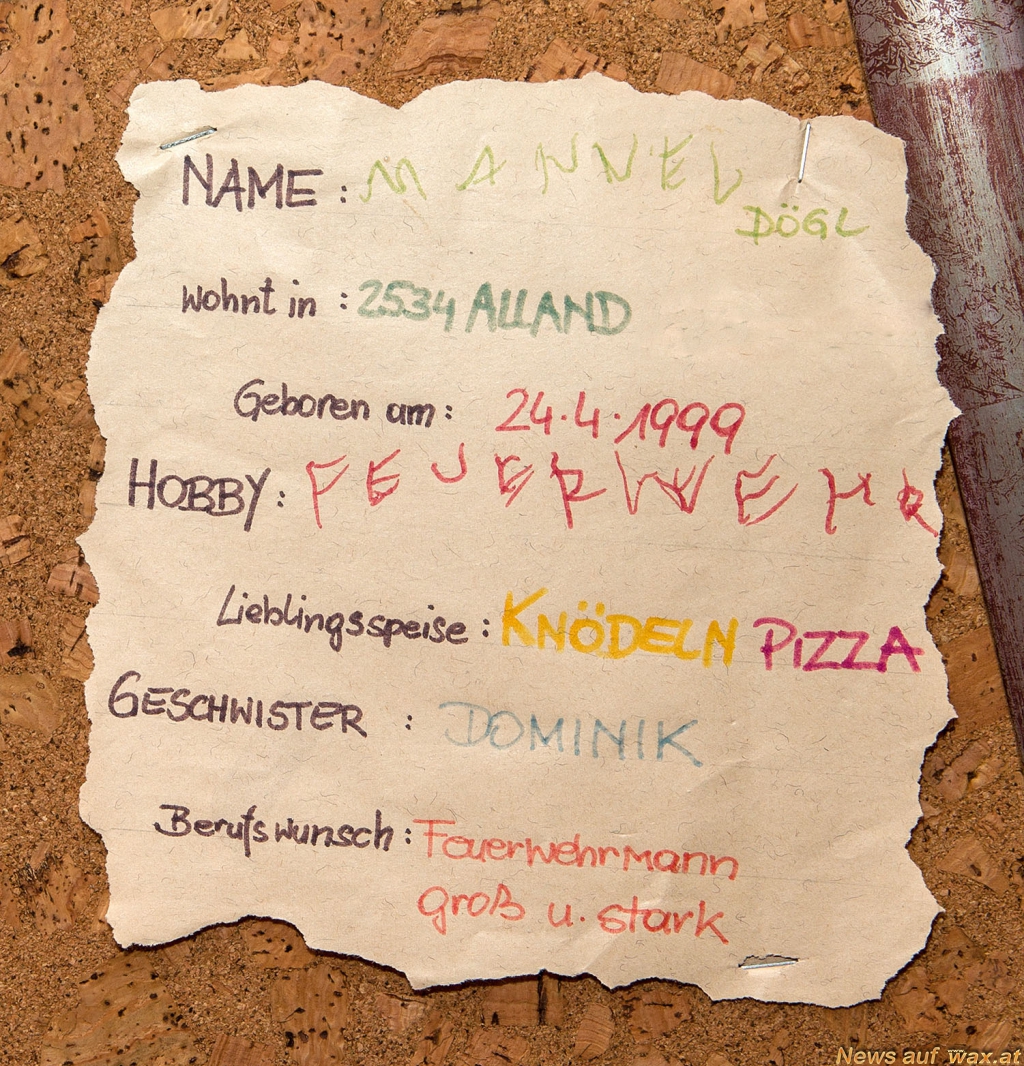 NAME: MANNEL
DÖGL
wohnt in: 2534 ALLAND
Geboren am: 24.4.1999
HOBBY: FEUERWEHR
Lieblingsspeise: KNÖDELN PIZZA
GESCHWISTER: DOMINIK
Berufswunsch: Feuerwehrmann
groß u. stark
News auf wax.at